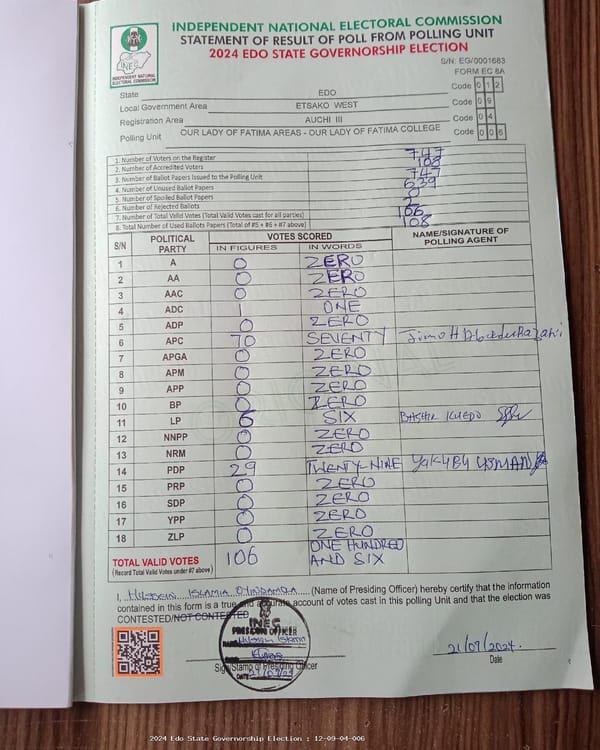 INDEPENDENT NATIONAL ELECTORAL COMMISSION
STATEMENT OF RESULT OF POLL FROM POLLING UNIT
2024 EDO STATE GOVERNORSHIP ELECTION
INEC
INDEPENDENT NATIONAL ELECTORAL COMMISSION
S/N: EG/0001683
FORM EC 8A
State EDO Code 0 1 2
Local Government Area ETSAKO WEST Code 0 9
Registration Area AUCHI III Code 0 4
Polling Unit OUR LADY OF FATIMA AREAS - OUR LADY OF FATIMA COLLEGE Code 0 0 6
1. Number of Voters on the Register 747
2. Number of Accredited Voters 108
3. Number of Ballot Papers Issued to the Polling Unit 747
4. Number of Unused Ballot Papers 639
5. Number of Spoiled Ballot Papers 0
6. Number of Rejected Ballots 2
7. Number of Total Valid Votes (Total Valid Votes cast for all parties) 106
8. Total Number of Used Ballots Papers (Total of #5 + #6 + #7 above) 108
S/N POLITICAL PARTY VOTES SCORED NAME/SIGNATURE OF POLLING AGENT
IN FIGURES IN WORDS
1 A 0 ZERO
2 AA 0 ZERO
3 AAC 0 ZERO
4 ADC 1 ONE
5 ADP 0 ZERO
6 APC 70 SEVENTY Jimoh
7 APGA 0 ZERO
8 APM 0 ZERO
9 APP 0 ZERO
10 BP 0 ZERO
11 LP 6 SIX BASHIR
12 NNPP 0 ZERO
13 NRM 0 ZERO
14 PDP 29 TWENTY-NINE YAKUBU USMAN
15 PRP 0 ZERO
16 SDP 0 ZERO
17 YPP 0 ZERO
18 ZLP 0 ZERO
TOTAL VALID VOTES 106 ONE HUNDRED
(Record Total Valid Votes under #7 above) AND SIX
I, ISLAMIA (Name of Presiding Officer) hereby certify that the information
contained in this form is a true and accurate account of votes cast in this polling Unit and that the election was
CONTESTED/NOT CONTESTED
INEC
PRESIDING OFFICER
Sign/Stamp of Presiding Officer
DATE
21/09/2024
Date
2024 Edo State Governorship Election : 12-09-04-006